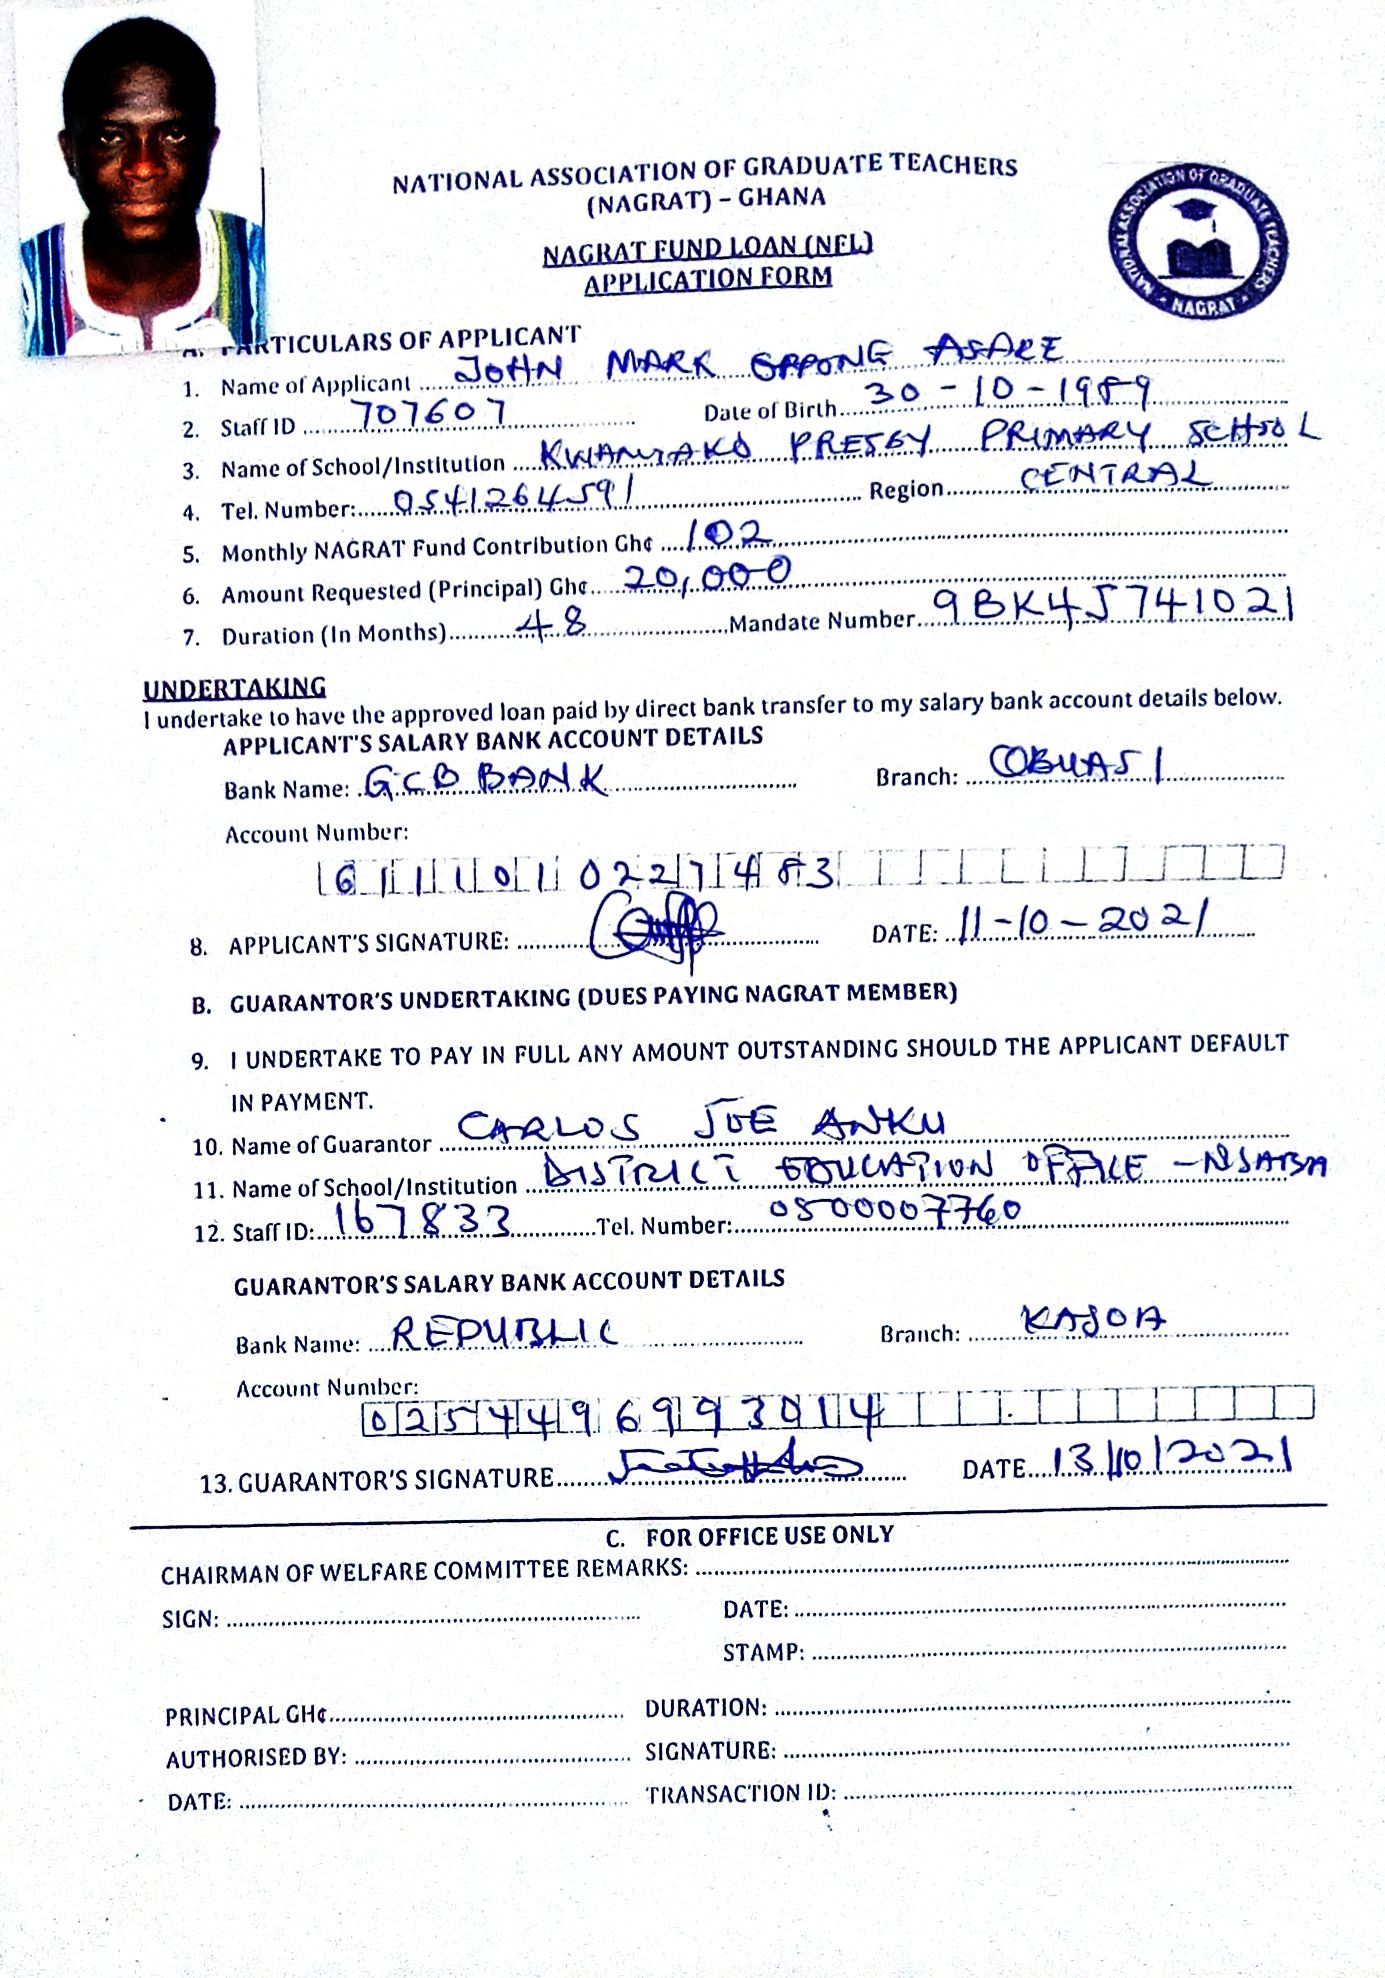 NATIONAL ASSOCIATION OF GRADUATE TEACHERS
(NAGRAT) – GHANA
NATIONAL ASSOCIATION OF GRADUATE TEACHERS
NAGRAT
NAGRAT FUND LOAN (NFL)
APPLICATION FORM
A. PARTICULARS OF APPLICANT
1. Name of Applicant JOHN MARK OPPONG ASARE
2. Staff ID 707607 Date of Birth 30-10-1989
3. Name of School/Institution KWANYAKO PRESBY PRIMARY SCHOOL
4. Tel. Number: 0541264591 Region CENTRAL
5. Monthly NAGRAT Fund Contribution Gh¢ 102
6. Amount Requested (Principal) Gh¢ 20,000
7. Duration (In Months) 48 Mandate Number 9BK45741021
UNDERTAKING
I undertake to have the approved loan paid by direct bank transfer to my salary bank account details below.
APPLICANT'S SALARY BANK ACCOUNT DETAILS
Bank Name: GCB BANK Branch: OBUASI
Account Number:
6111010227483
8. APPLICANT'S SIGNATURE: DATE: 11-10-2021
B. GUARANTOR'S UNDERTAKING (DUES PAYING NAGRAT MEMBER)
9. I UNDERTAKE TO PAY IN FULL ANY AMOUNT OUTSTANDING SHOULD THE APPLICANT DEFAULT
IN PAYMENT.
10. Name of Guarantor CARLOS JOE ANKU
11. Name of School/Institution DISTRICT EDUCATION OFFICE - NSABA
12. Staff ID: 167833 Tel. Number: 0500007760
GUARANTOR'S SALARY BANK ACCOUNT DETAILS
Bank Name: REPUBLIC Branch: KASOA
Account Number:
0254496993014
13. GUARANTOR'S SIGNATURE DATE 13/10/2021
C. FOR OFFICE USE ONLY
CHAIRMAN OF WELFARE COMMITTEE REMARKS:
SIGN: DATE:
STAMP:
PRINCIPAL GH¢ DURATION:
AUTHORISED BY: SIGNATURE:
DATE: TRANSACTION ID: